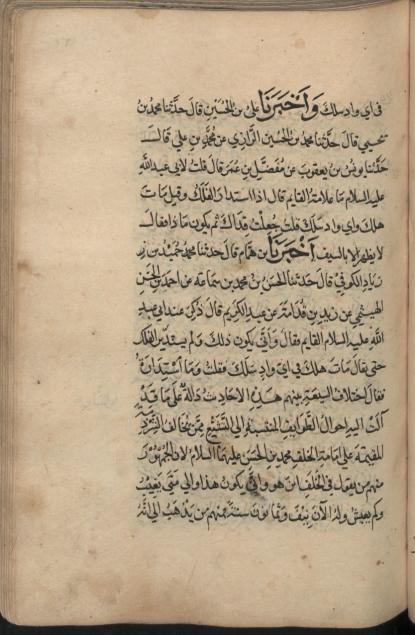 في اي واد سلك وَاَخْبَرَنَا علي بن الحسين قال حدثنا محمد بن
يحيى قال حدثنا محمد بن الحسين الرازي عن محمد بن علي قال
حدثنا يونس بن يعقوب عن مفضل بن عمر قال قلت لابي عبد الله
عليه السلام ما علامة القايم قال اذا استدار الفلك وقيل مات
هلك واي واد سلك قلت جعلت فداك ثم يكون ماذا فقال
لا يظهر الا بالسيف اَخْبَرَنَا بن همام قال حدثنا محمد حميد بن
زياد الكوفي قال حدثنا الحسن بن محمد بن سماعة عن احمد بن الحسن
الميثمي عن زيد بن قدامة عن عبد الكريم قال ذكر عند ابي عبد
الله عليه السلام القايم فقال واني يكون ذلك ولم يستدير الفلك
حتى يقال مات هلك في اي واد سلك فقلت وما استدارة
فقال اختلاف الشيعة بينهم هذه الاحاديث دالة على ما قد
آلت اليه احوال الطوايف المنتسبة الى التشيع ممن خالف الشرذمة
المقيمة على امامة الخلف محمد بن الحسن عليهما السلام لان الجمهور
منهم من يقول في الخلف اين هو واني يكون هذا والى متى يغيب
وكم يعيش وله الآن نيف وثمانون سنة فمنهم من يذهب الى انه